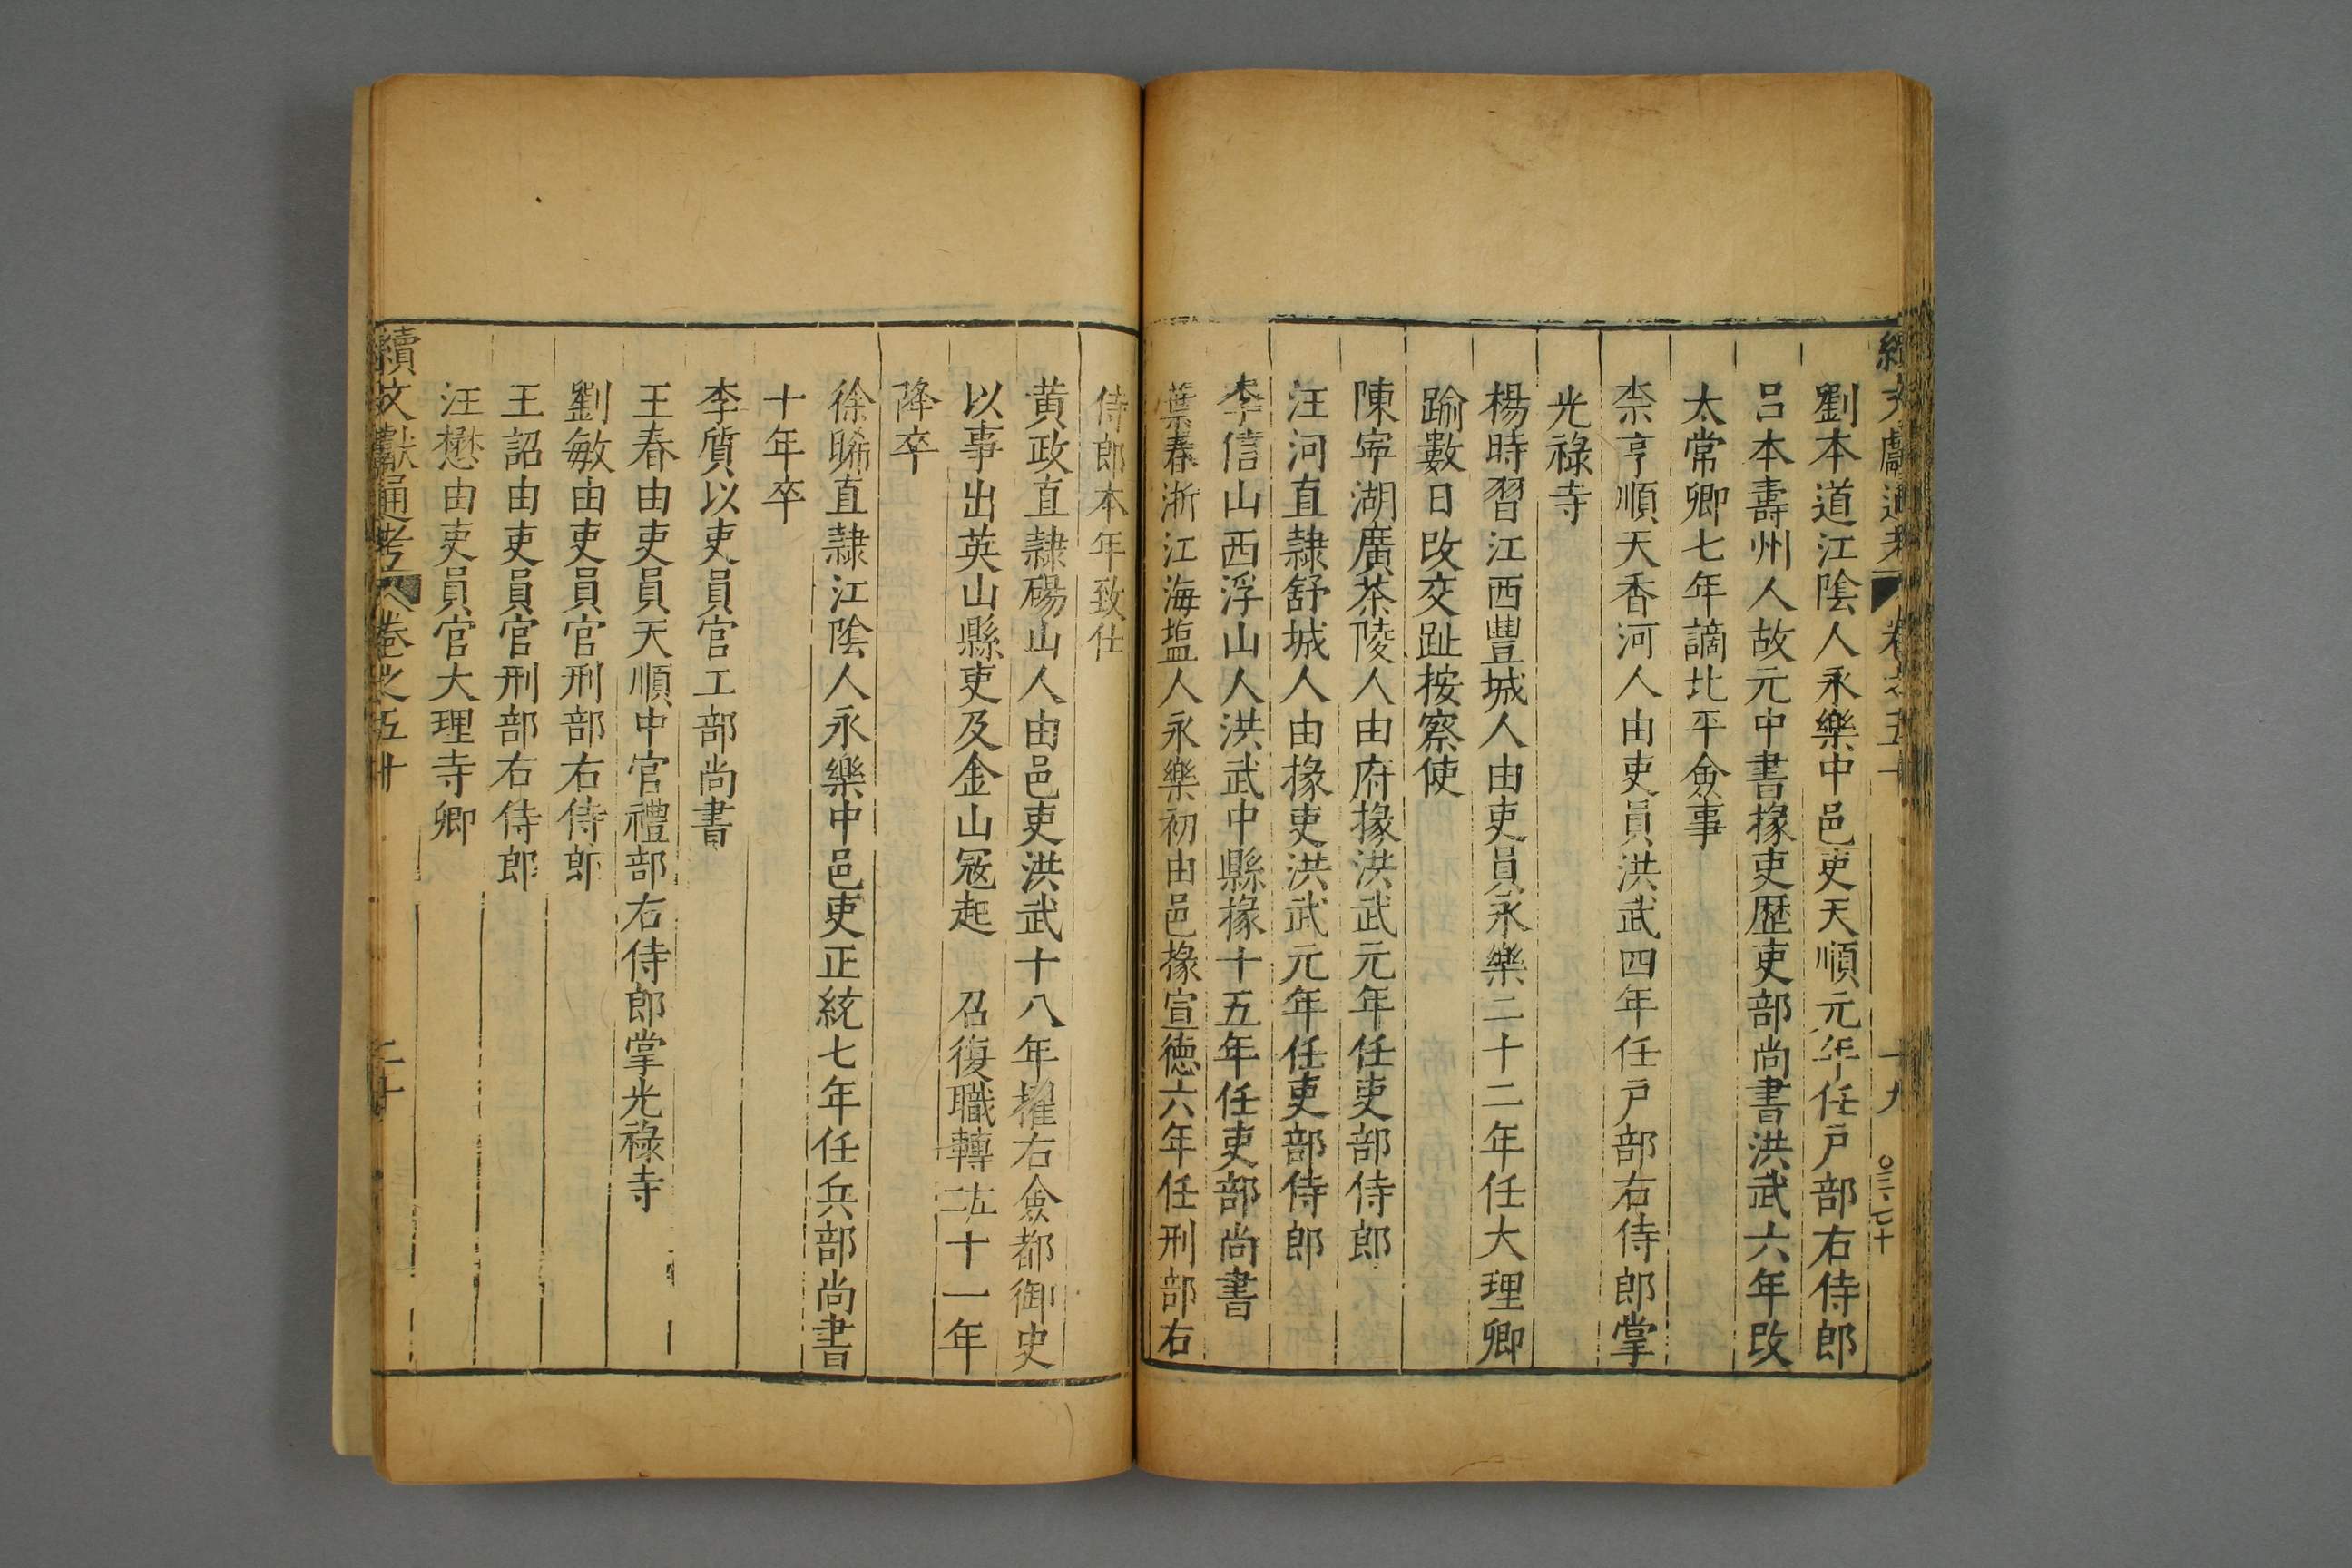 續文獻通考 卷之五十 十九
劉本道江陰人永樂中邑吏天順元年任戶部右侍郎
呂本壽州人故元中書掾吏歷吏部尚書洪武六年改
太常卿七年謫北平僉事
柰亨順天香河人由吏員洪武四年任戶部右侍郎掌
光祿寺
楊時習江西豐城人由吏員永樂二十二年任大理卿
踰數日改交趾按察使
陳寧湖廣茶陵人由府掾洪武元年任吏部侍郎
汪河直隸舒城人由掾吏洪武元年任吏部侍郎
李信山西浮山人洪武中縣掾十五年任吏部尚書
葉春浙江海塩人永樂初由邑掾宣德六年任刑部右
侍郎本年致仕
黄政直隸碭山人由邑吏洪武十八年擢右僉都御史
以事出英山縣吏及金山冦起 召復職轉左二十一年
降卒
徐晞直隸江陰人永樂中邑吏正統七年任兵部尚書
十年卒
李質以吏員官工部尚書
王春由吏員天順中官禮部右侍郎掌光祿寺
劉敏由吏員官刑部右侍郎
王詔由吏員官刑部右侍郎
汪懋由吏員官大理寺卿
續文獻通考 卷之五十 二十